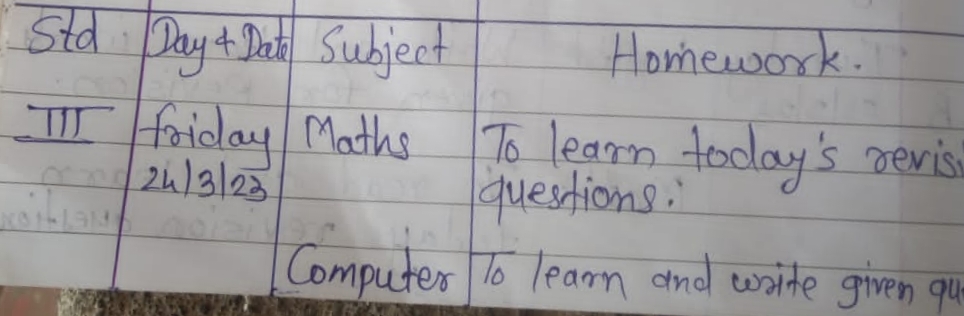 Std Day & Date Subject Homework.
III friday Maths To learn today's
24/3/23 questions:
Computer To learn and write given